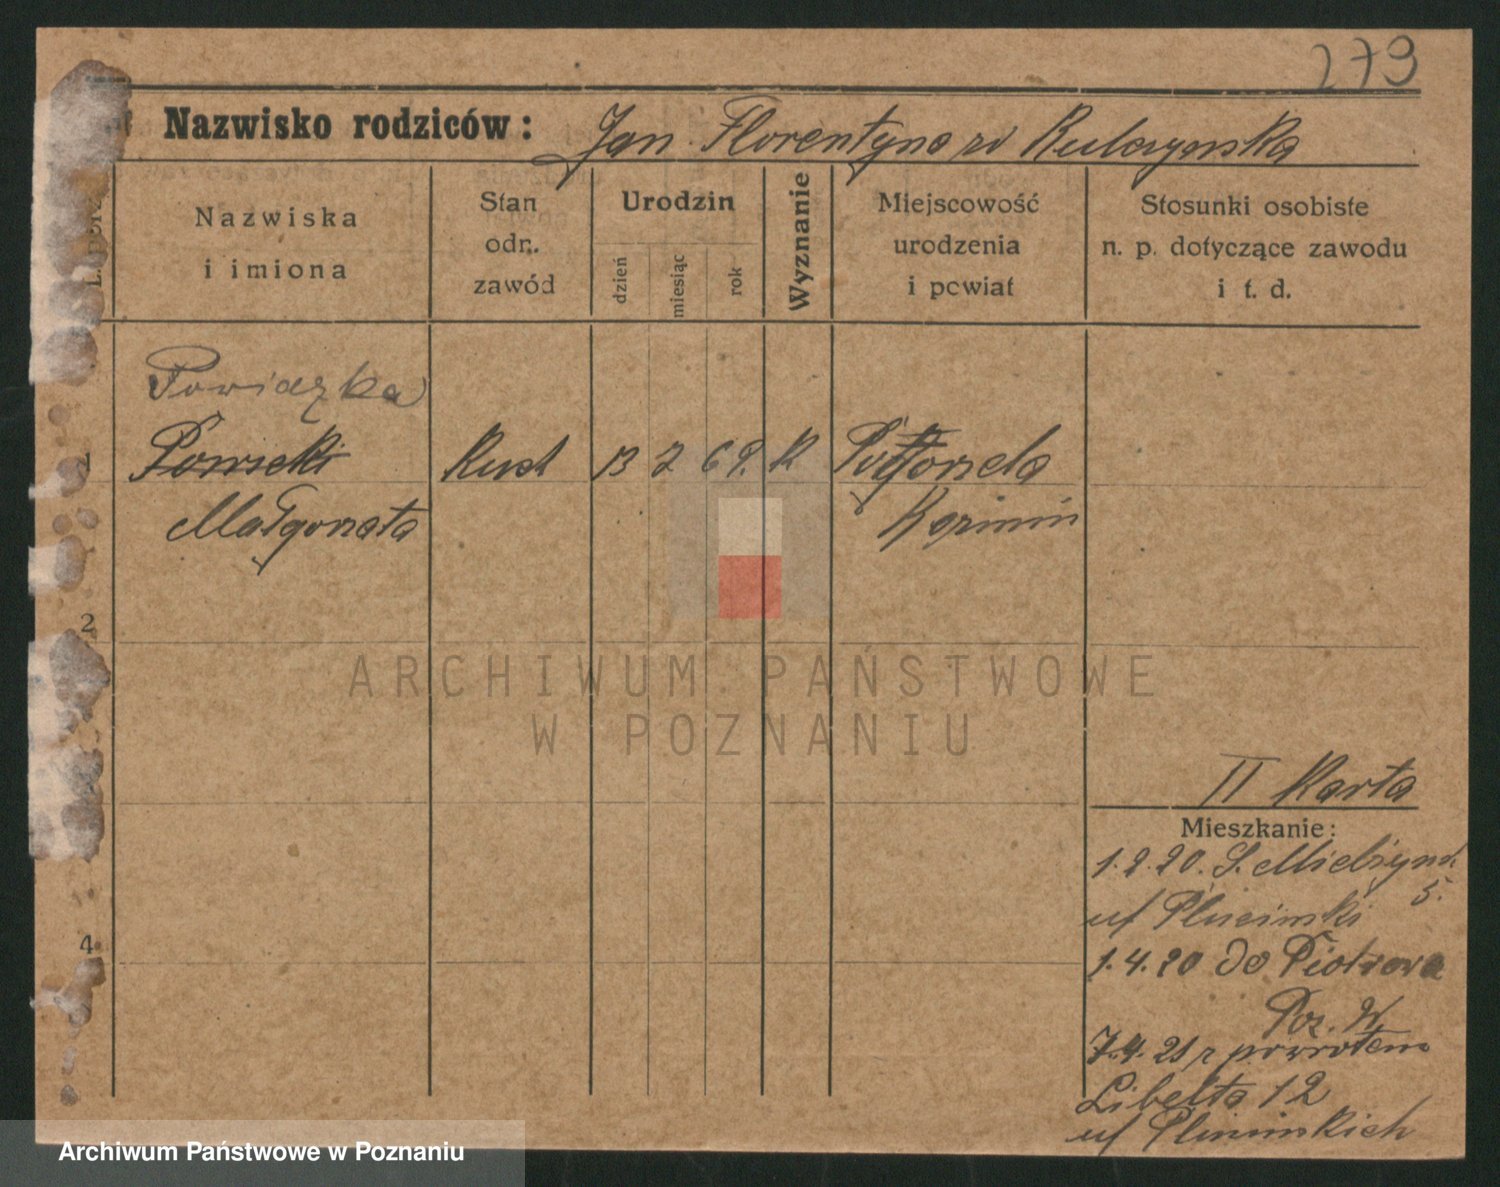 279
Nazwisko rodziców: Jan Florentyna zd Kulczyńska
L. porz.
Nazwiska
i imiona
Stan
odn.
zawód
Urodzin
dzień
miesiąc
rok
Wyznanie
Miejscowość
urodzenia
i powiat
Stosunki osobiste
n. p. dotyczące zawodu
i t. d.
Powiązka
1 Powseki 13 2 69. K
Małgorzata
2
4
II Karta
Mieszkanie:
1.2.20. S. Mielżyńsk.
5.
1.4.20 do Piotrowa
Poz. W
7.4.21 z powrotem
Libelta 12
ARCHIWUM PAŃSTWOWE
W POZNANIU
Archiwum Państwowe w Poznaniu